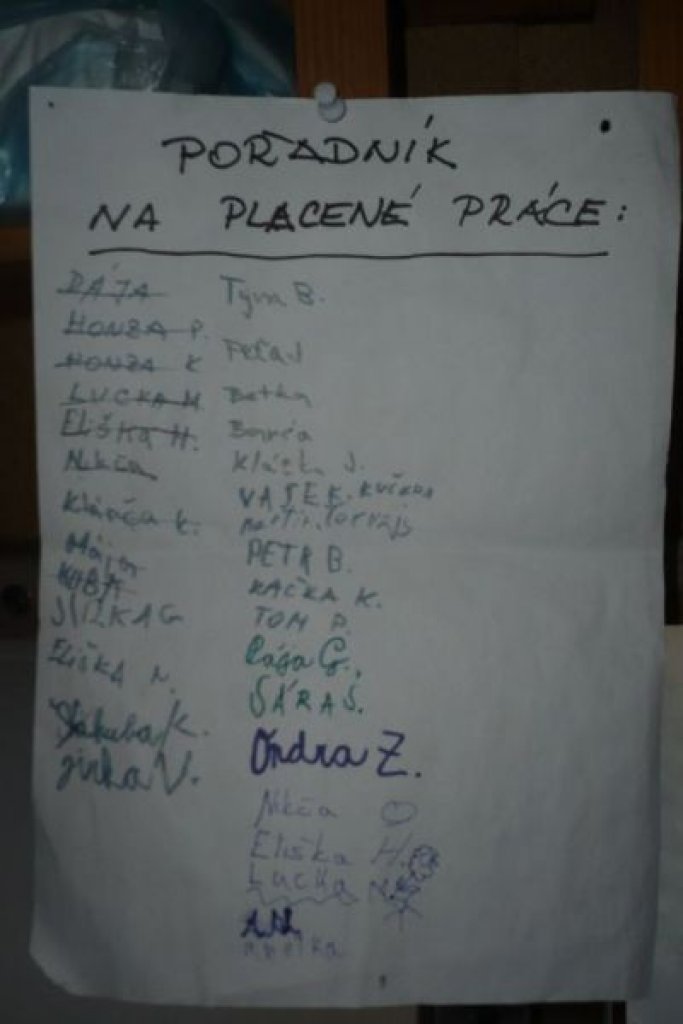 POŘADNÍK
NA PLACENÉ PRÁCE:
DÁJA
HONZA P.
HONZA K
LUCKA M
ELIŠKA H.
Nikča
Klárča K.
Mája
KUBA
JIŘKA G
ELIŠKA N.
Jakuba K.
Jirka V.
Tým B.
Peťa J
Betka
Barča
Klárka J.
VAŠEK KUČERA
PETR B.
KAČKA K.
TOM P.
Gága G.
ŠÁRA Š.
Ondra Z.
Nikča
Eliška H.
Lucka